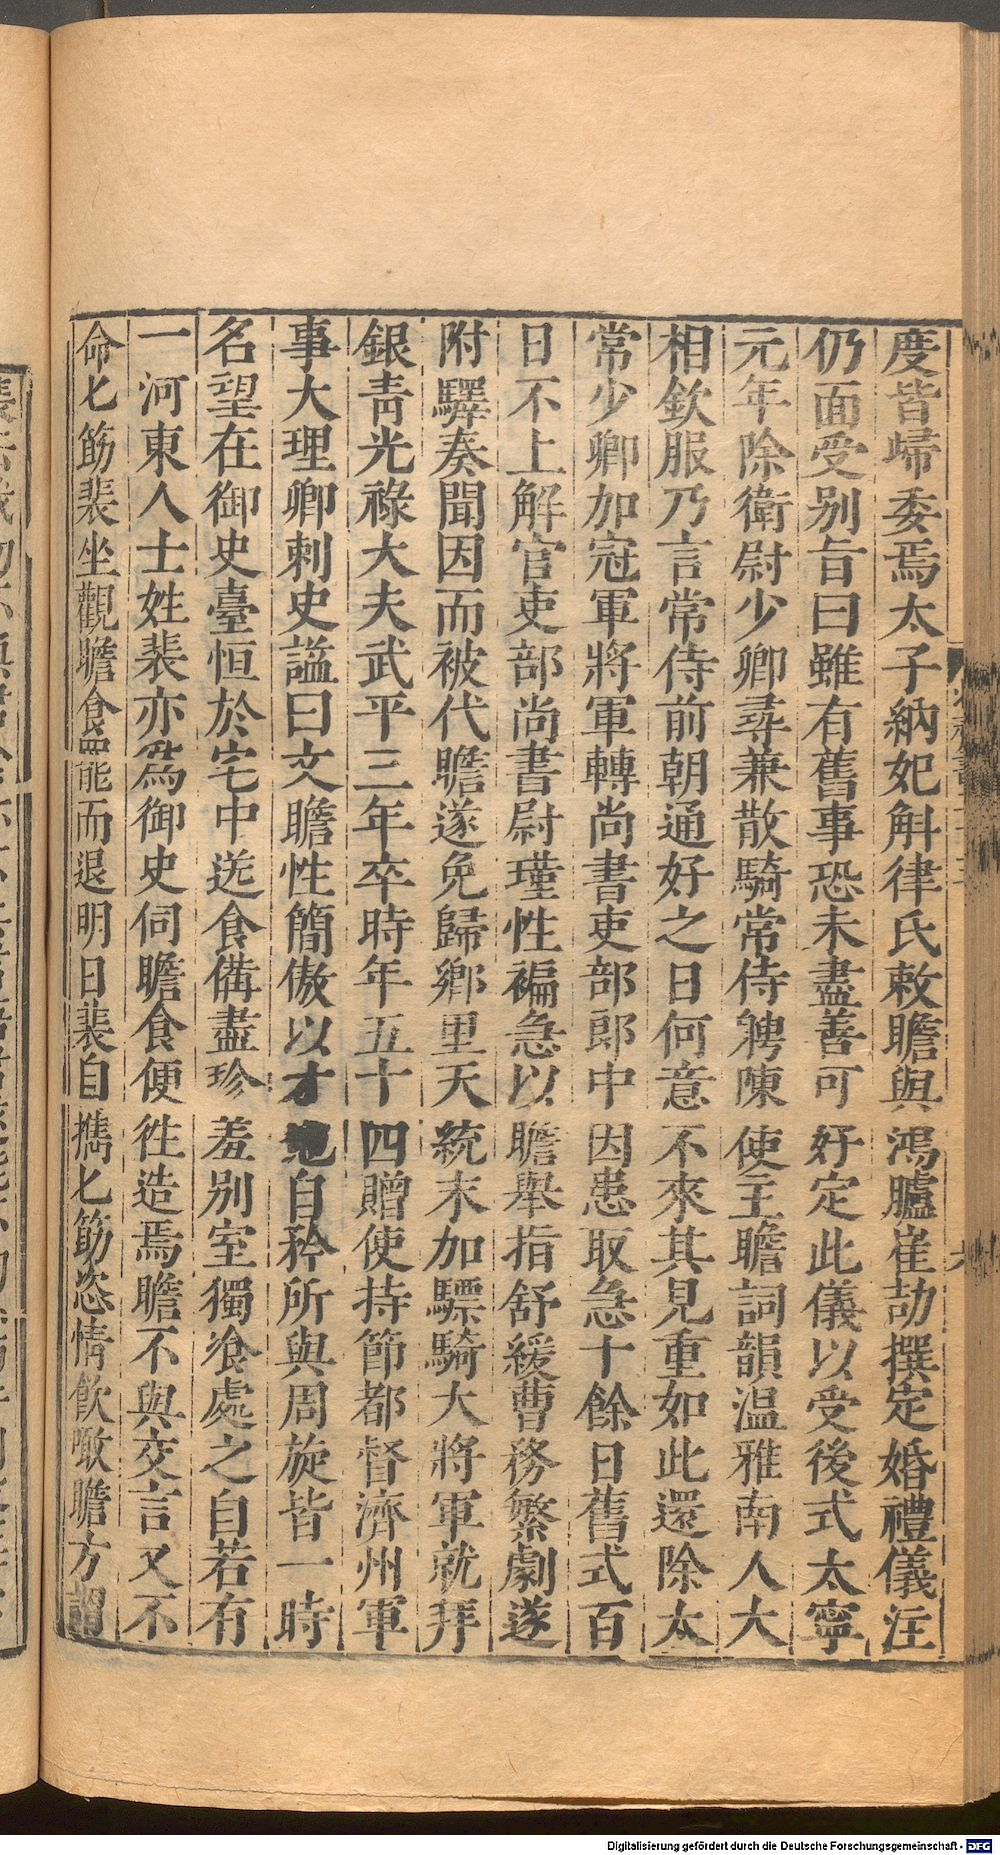 度皆歸委焉太子納妃斛律氏敕瞻與鴻臚崔劼撰定婚禮儀注
仍面受别旨曰雖有舊事恐未盡善可好定此儀以受後式太寧
元年除衛尉少卿尋兼散騎常侍聘陳使主瞻詞韻温雅南人大
相欽服乃言常侍前朝通好之日何意不來其見重如此還除太
常少卿加冠軍將軍轉尚書吏部郎中因患取急十餘日舊式百
日不上解官吏部尚書尉瑾性褊急以瞻舉指舒緩曹務繁劇遂
附驛奏聞因而被代瞻遂免歸鄉里天統末加驃騎大將軍就拜
銀青光祿大夫武平三年卒時年五十四贈使持節都督濟州軍
事大理卿刺史謚曰文瞻性簡傲以才地自矜所與周旋皆一時
名望在御史臺恒於宅中送食備盡珍羞别室獨飡處之自若有
一河東人士姓裴亦爲御史伺瞻食便徃造焉瞻不與交言又不
命匕筯裴坐觀瞻食罷而退明日裴自攜匕筯恣情飲噉瞻方謂
Digitalisierung gefördert durch die Deutsche Forschungsgemeinschaft - DFG